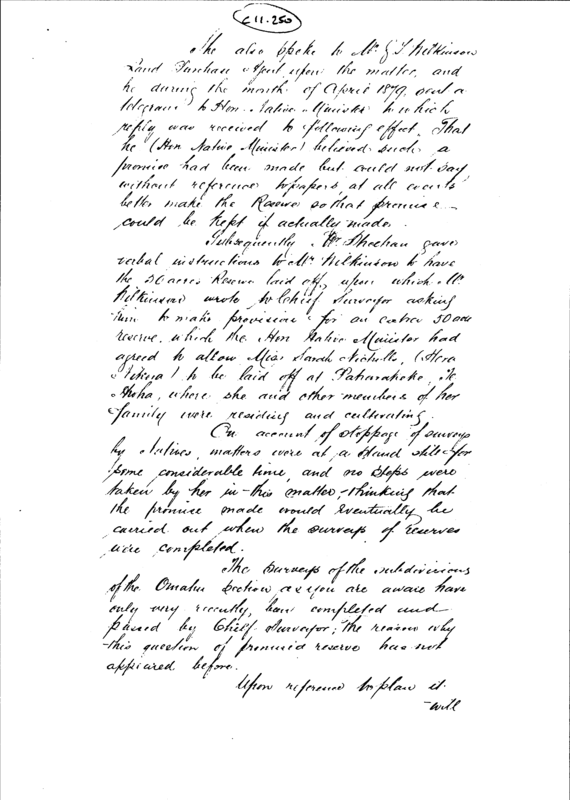 C11.250
She also spoke to Mr. G T Wilkinson
Land Purchase Agent upon the matter, and
he during the month of April 1879, sent a
telegram to Hon. Native Minister to which
reply was received to following effect. That
he (Hon Native Minister) believed such a
promise had been made but could not say
without reference to papers, at all events
better make the Reserve so that promise
could be kept if actually made.
Subsequently Mr. Sheehan gave
verbal instructions to Mr. Wilkinson to have
the 50 acres Reserve laid off, upon which Mr.
Wilkinson wrote to Chief Surveyor asking
him to make provision for an extra 50 acre
reserve, which the Hon Native Minister had
agreed to allow Miss Sarah Nicholls, (Hera
) to be laid off at Te
Aroha, where she and other members of her
family were residing and cultivating.
On account of stoppage of surveys
by Natives, matters were at a stand still for
some considerable time, and no steps were
taken by her in this matter thinking that
the promise made would eventually be
carried out when the surveys of Reserves
were completed.
The surveys of the subdivisions
of the Omahu section as you are aware have
only very recently, been completed and
passed by Chief Surveyor; the reason why
this question of promised reserve has not
appeared before.
Upon reference to plan it
will